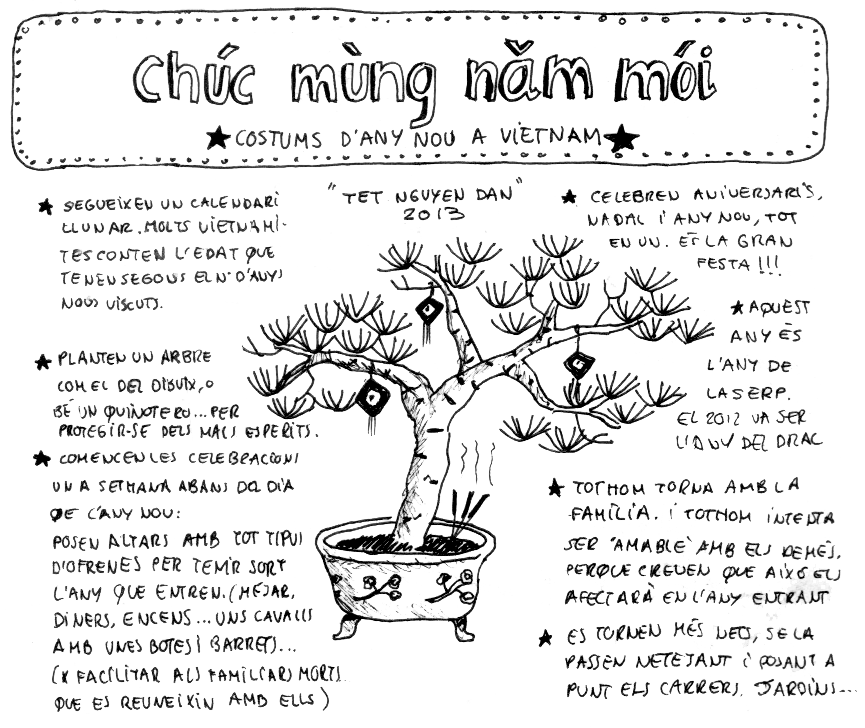 Chúc mùng năm mói
★ COSTUMS D'ANY NOU A VIETNAM ★
"TET NGUYEN DAN"
2013
★ SEGUEIXEN UN CALENDARI
LLUNAR. MOLTS VIETNAMI-
TES CONTEN L'EDAT QUE
TENEN SEGONS EL Nº D'ANYS
NOUS VISCUTS.
★ PLANTEN UN ARBRE
COM EL DEL DIBUIX, O
BÉ UN QUINOTERO... PER
PROTEGIR-SE DELS MALS ESPERITS.
★ COMENCEN LES CELEBRACIONS
UNA SETMANA ABANS DEL DIA
DE L'ANY NOU:
POSEN ALTARS AMB TOT TIPUS
D'OFRENES PER TENIR SORT
L'ANY QUE ENTREN. (MENJAR,
DINERS, ENCENS... UNS CAVALLS
AMB UNES BOTES I BARRETS...
(X FACILITAR ALS FAMILIARS MORTS
QUE ES REUNEIXIN AMB ELLS)
★ CELEBREN ANIVERSARIS,
NADAL I ANY NOU, TOT
EN UN. ÉS LA GRAN
FESTA!!!
★ AQUEST
ANY ÉS
L'ANY DE
LA SERP.
EL 2012 VA SER
L'ANY DEL DRAC
★ TOTHOM TORNA AMB LA
FAMÍLIA. I TOTHOM INTENTA
SER "AMABLE" AMB ELS DEMÉS,
PERQUE CREUEN QUE AIXÒ ELS
AFECTARÀ EN L'ANY ENTRANT
★ ES TORNEN MÉS NETS, SE LA
PASSEN NETEJANT I POSANT A
PUNT ELS CARRERS. JARDINS...